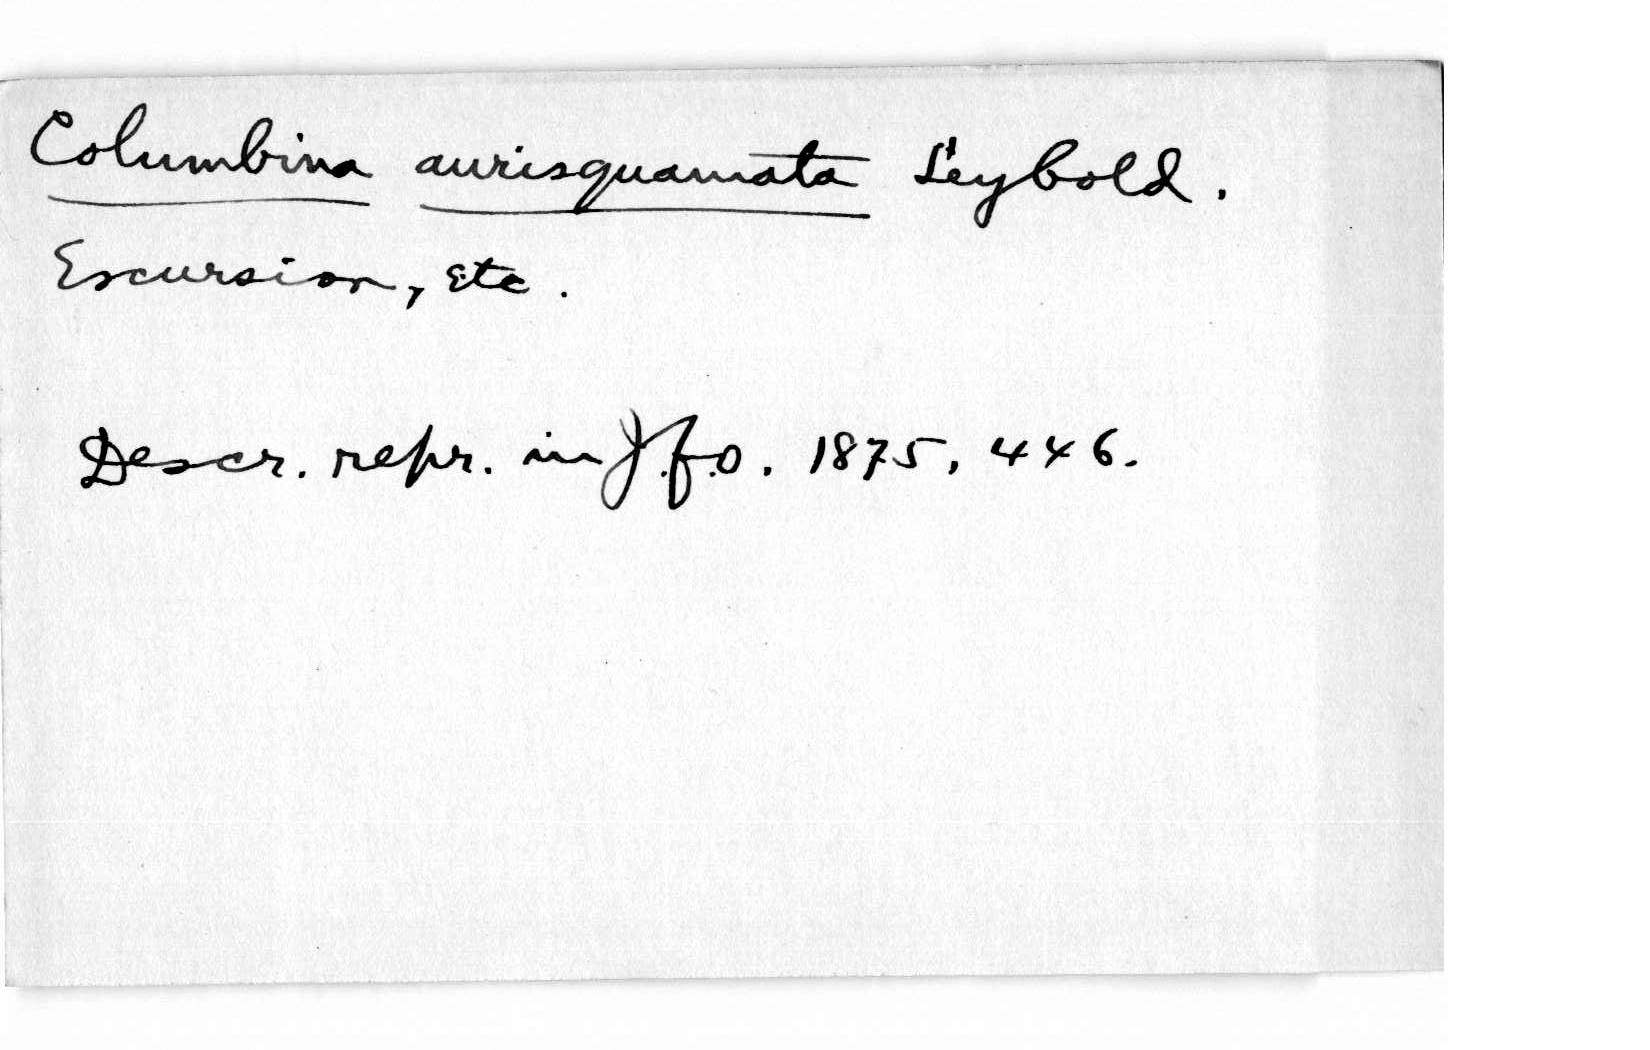 Columbina aurisquamata Leybold.
Excursion, etc.
Descr. repr. in J.f.O. 1875, 446.